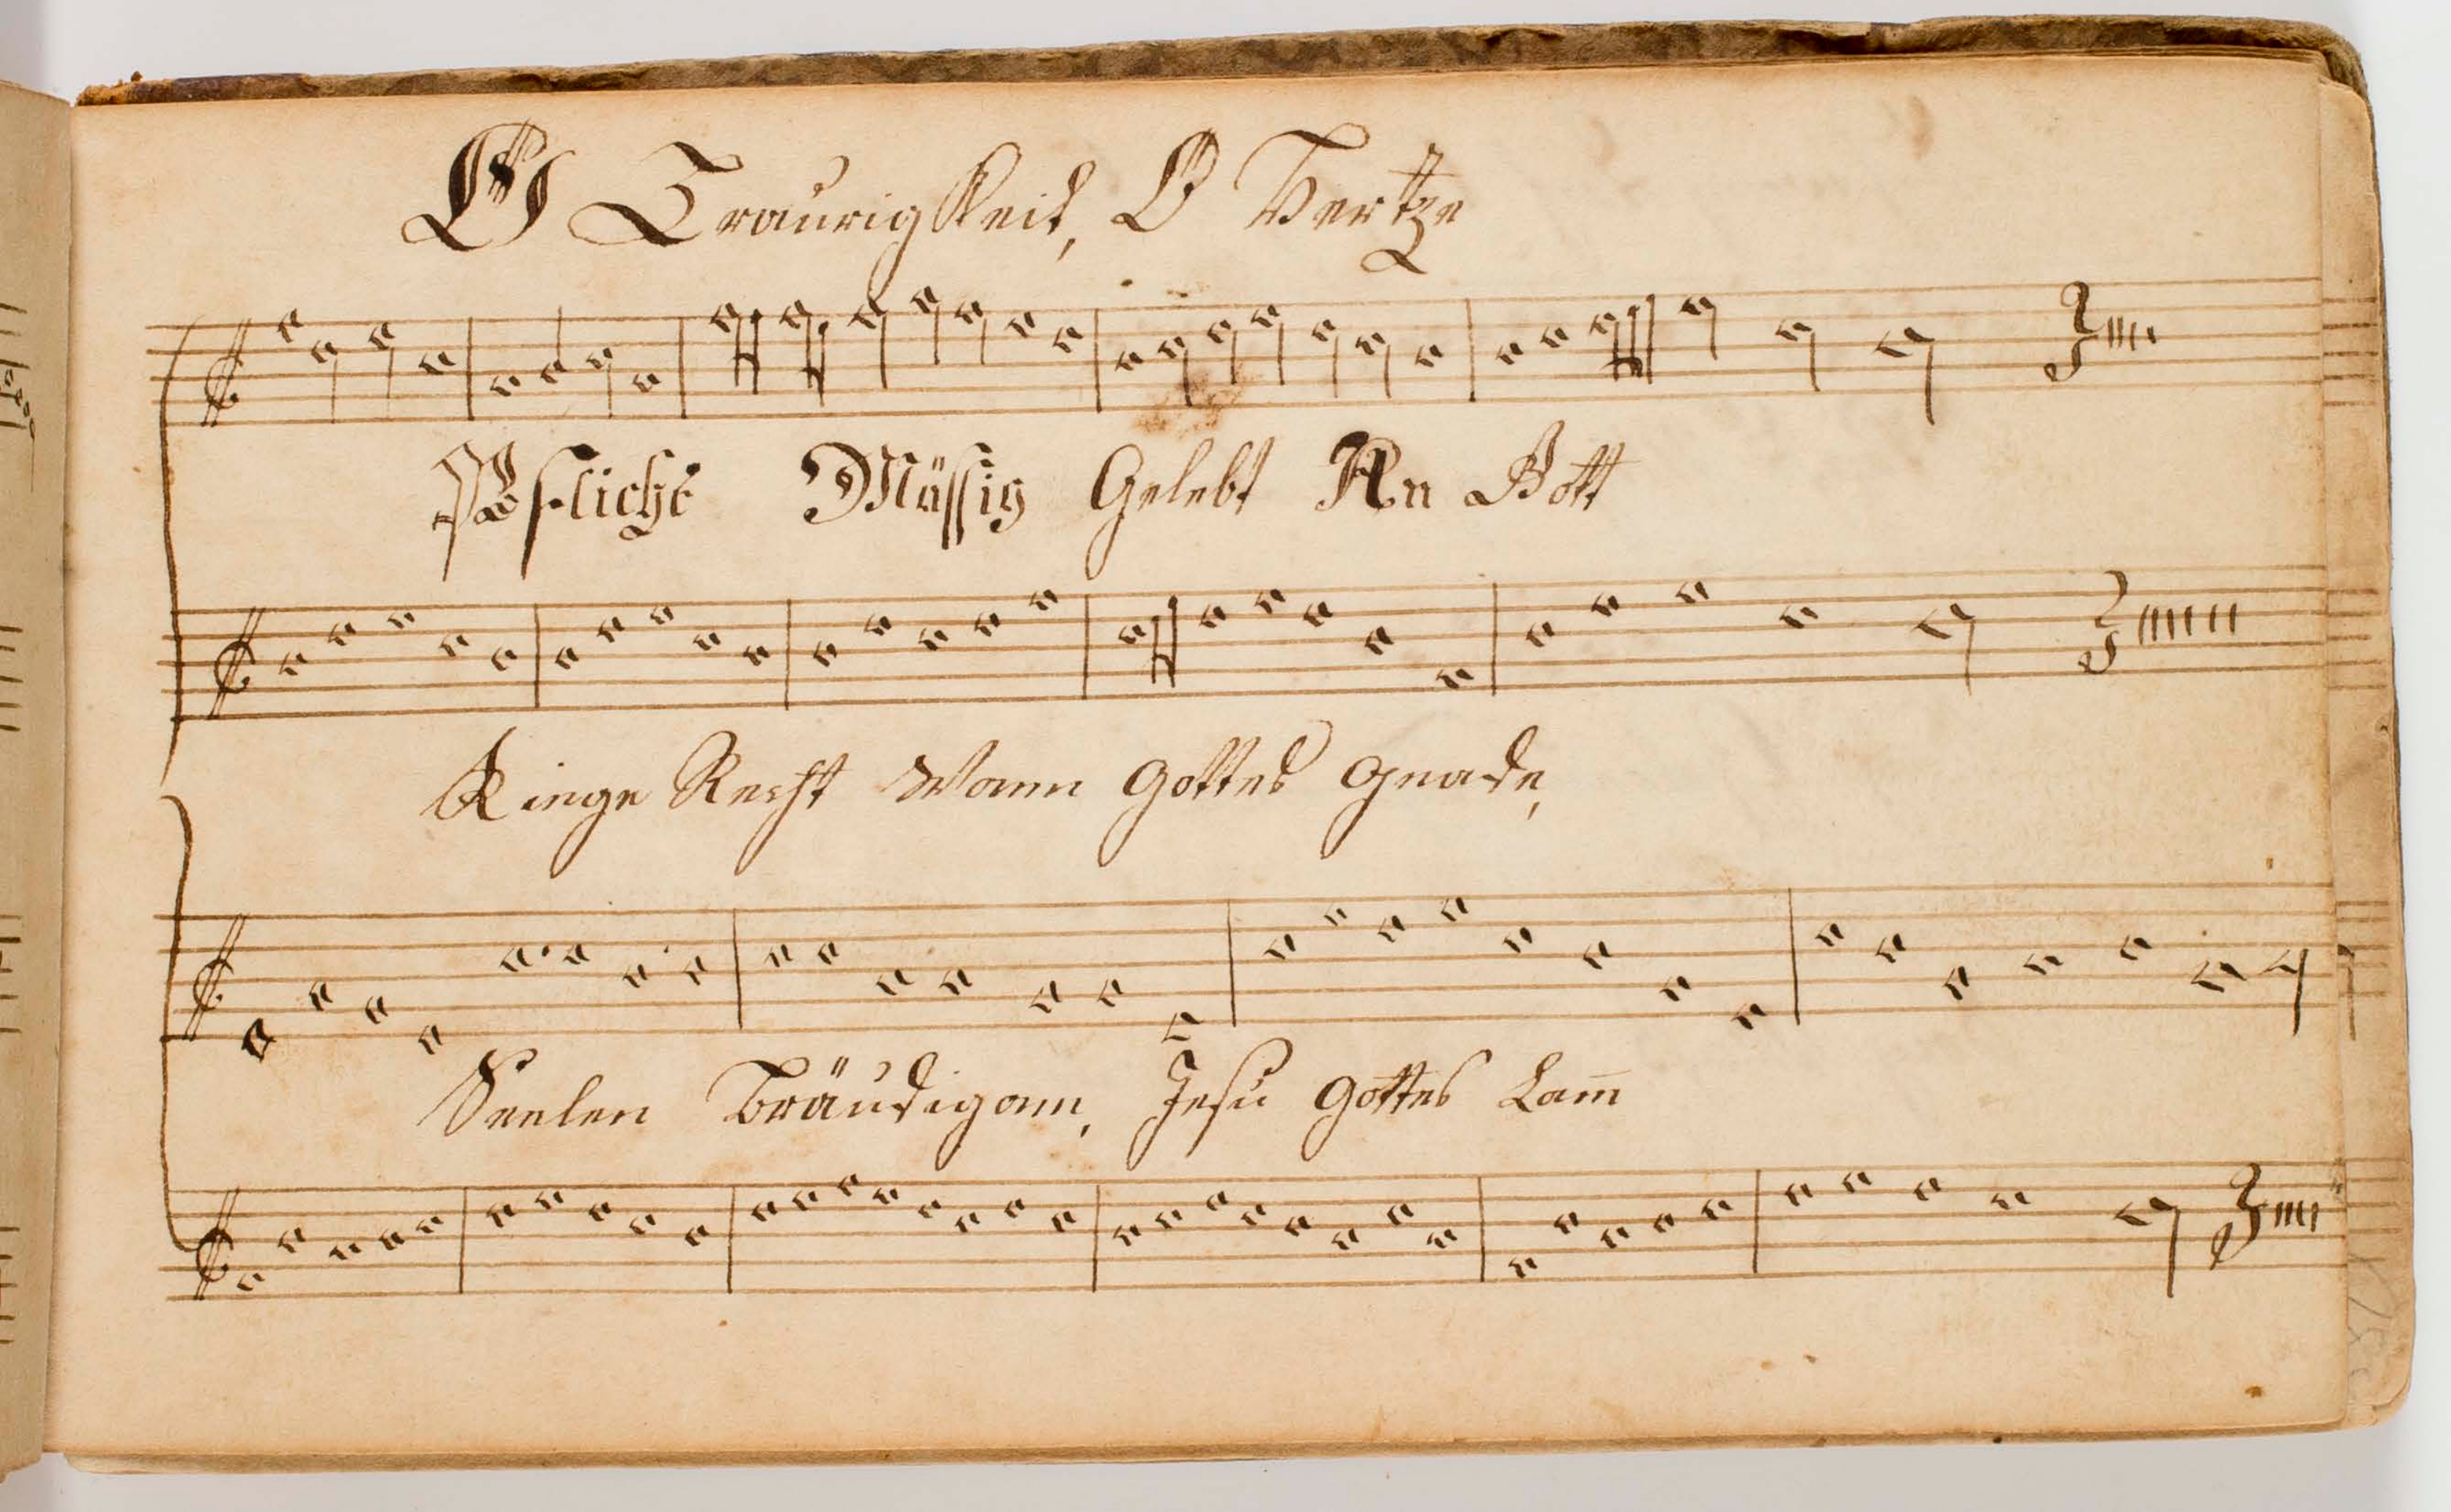 O Traurigkeit, O Hertze
Pflicht Mässig Gelebt An Gott
Ringe Recht Wann Gottes Gnade,
Seelen Bräudigam, Jesu Gottes Lam̄